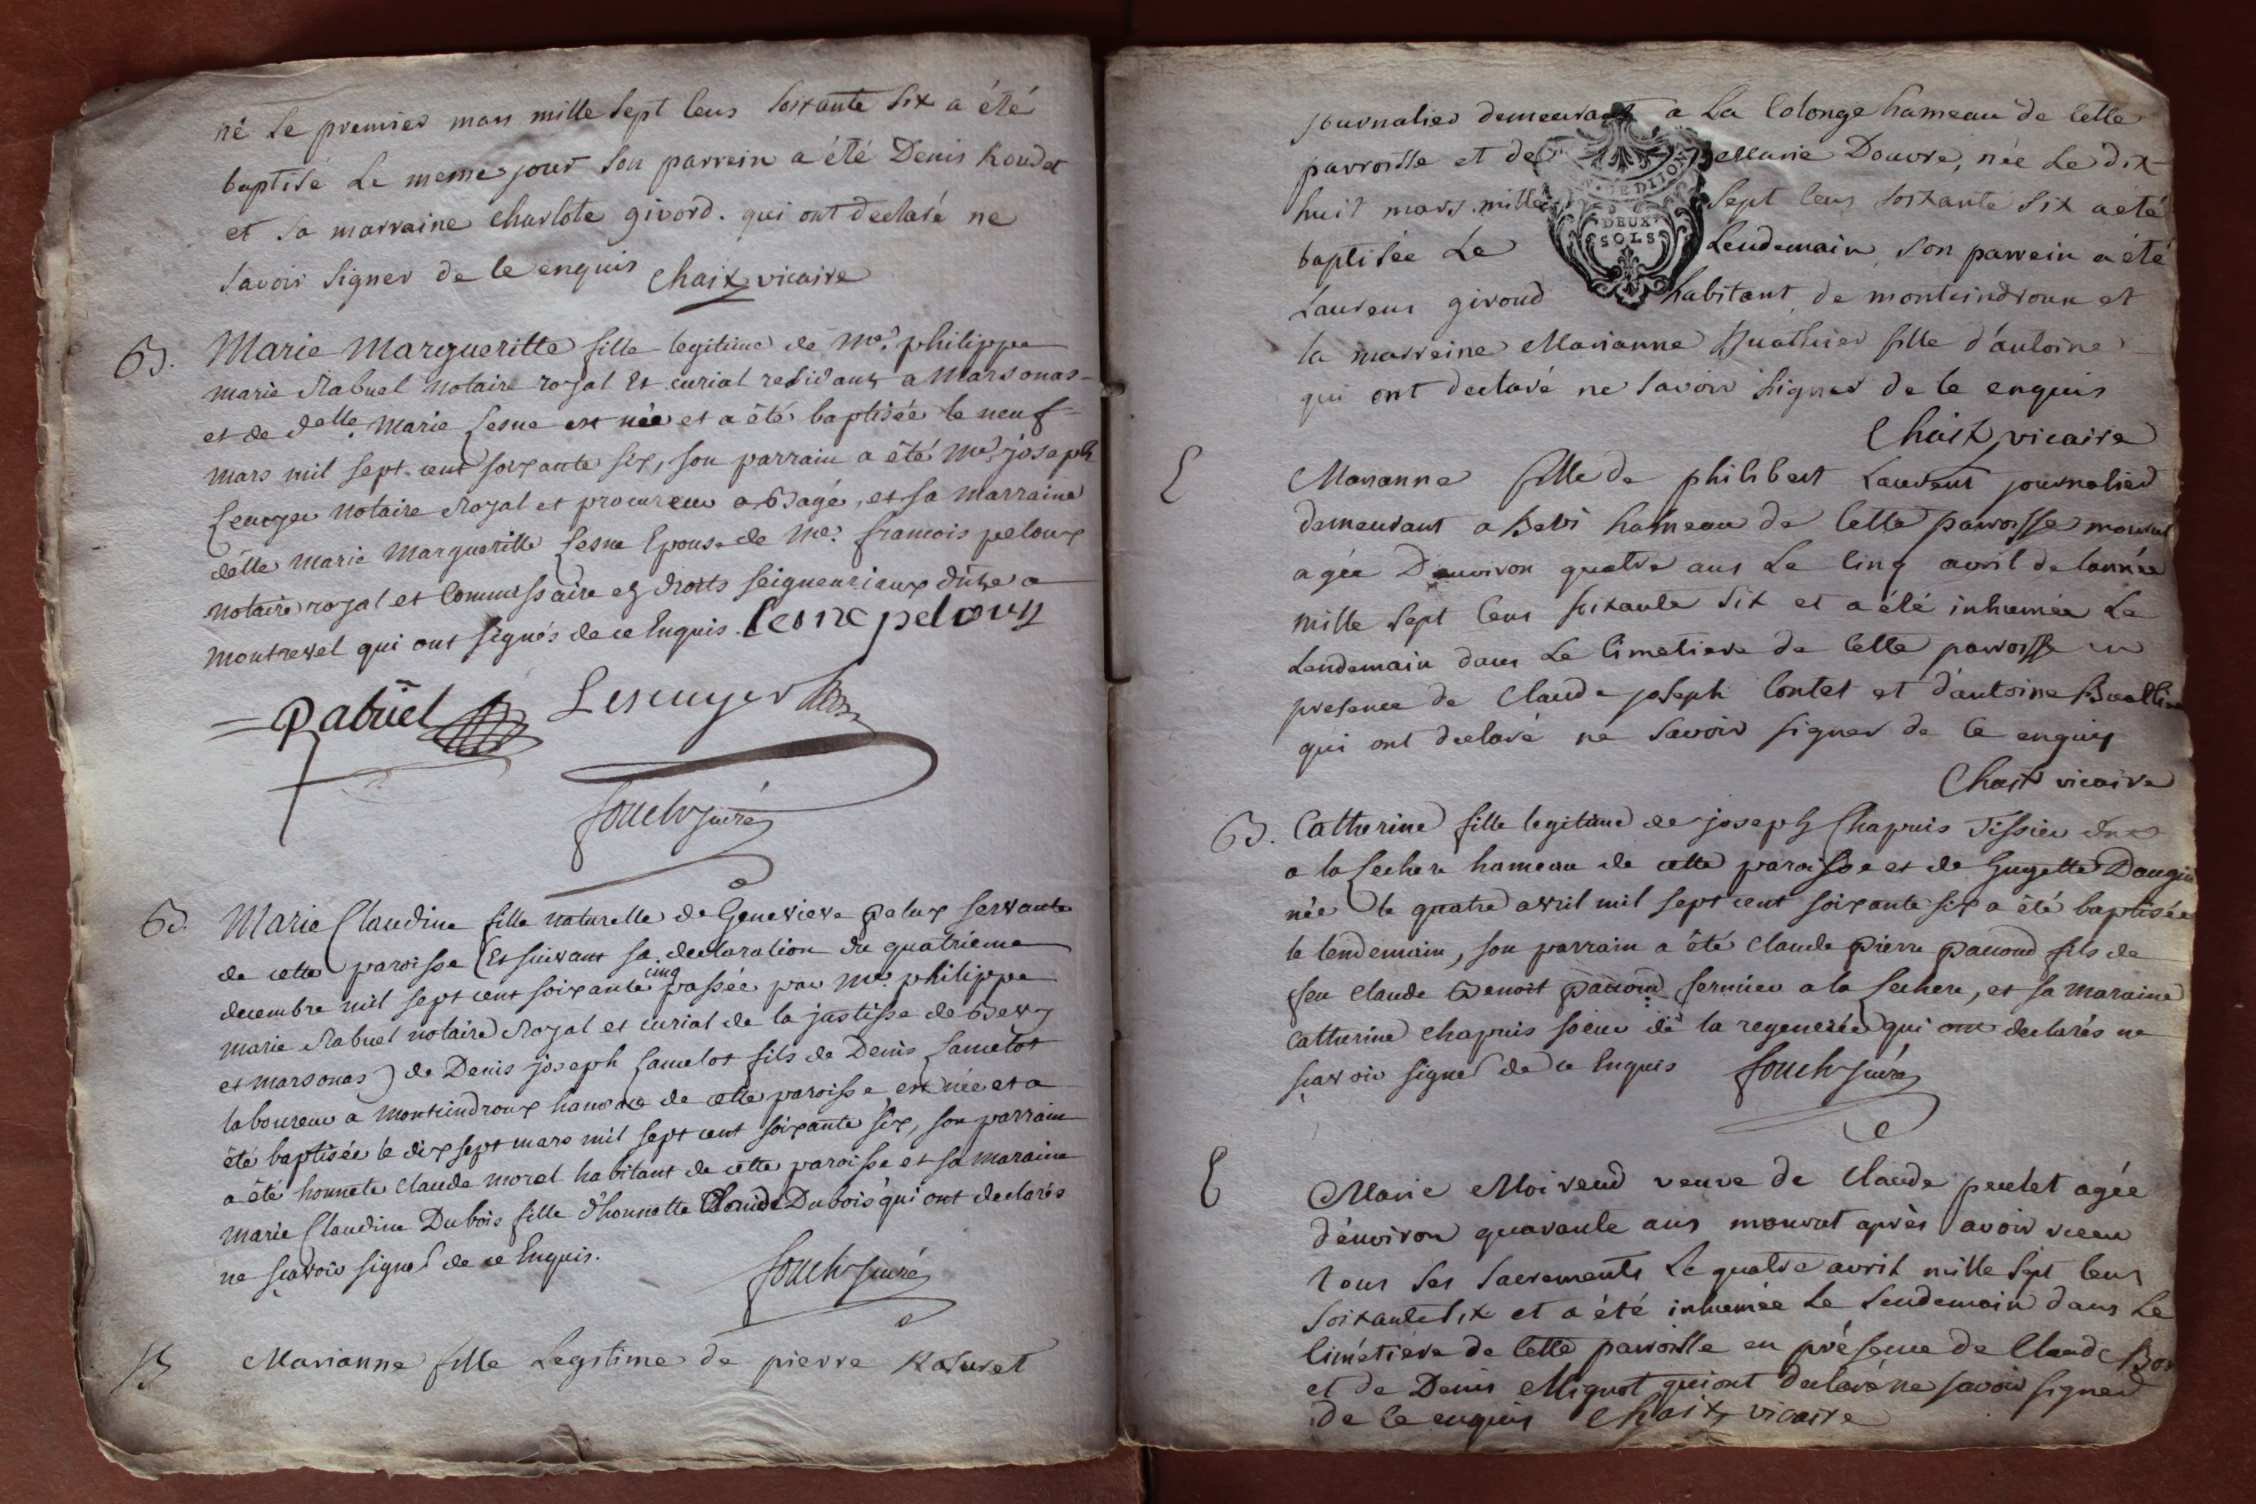 né le premier mars mille sept cens soixante six a été
baptisé le meme jour son parrein a été Denis Roudet
et sa marraine charlote givord. qui ont declaré ne
savoir signer de ce enquis Chaix vicaire
B. Marie Margueritte fille legitime de Me. philippe
marie Rabuel notaire royal et curial residant a Marsonas
et de delle. Marie Lesne est née et a été baptisée le neuf
mars mil sept cent soixante six, son parrain a été Me. joseph
Lescuyer notaire Royal et procureur a Bagé, et sa marraine
delle Marie Margueritte Lesne Epouse de Me. francois peloux
notaire royal et Commissaire es droits seigneuriaux a
montrevel qui ont signés de ce Enquis. Lesne peloux
Rabuel Lescuyer
curé
B. Marie Claudine fille naturelle de Genevieve palux servante
de cette paroisse (Et suivant sa declaration du quatrieme
decembre mil sept cent soixante cinq passée par Me. philippe
marie Rabuel notaire Royal et curial de la justisse de Bevy
et marsonas) de Denis joseph Lamelot fils de Denis Lamelot
laboureur a montcindroux hameau de cette paroisse est née et a
été baptisée le dix sept mars mil sept cent soixante six, son parrain
a été honnete claude morel habitant de cette paroisse et sa maraine
marie Claudine Dubois fille d'honnette Claude Dubois qui ont declarés
ne scavoir signer de ce Enquis.
curé
B Marianne fille Legitime de pierre Rasuret
journalier demeurant a La Colonge hameau de cette
parroisse et de Marie Douvre, née le dix
huit mars mille sept cens soixante six a été
baptisée Le Lendemain, son parrein a été
Laurens giroud habitant de montcindroux et
la marreine Marianne Buathier fille d'antoine
qui ont declaré ne savoir signer de ce enquis
Chaix vicaire
E Marianne fille de philibert Laurent journalier
demeurant a Bevi hameau de cette parroisse mourut
agée D'environ quatre ans Le cinq avril de lannée
mille sept cens soixante six et a été inhumée Le
Lendemain dans Le cimetiere de cette parroisse en
presence de Claude joseph Contet et d'antoine
qui ont declaré ne savoir signer de ce enquis
Chaix vicaire
B. Catherine fille legitime de joseph Chapuis Tissier
a la Lechere hameau de cette paroisse et de Guyette
née le quatre avril mil sept cent soixante six a été baptisée
le lendemain, son parrain a été claude pierre pacoud fils de
feu claude Benoit pacoud fermier a la Lechere, et sa maraine
catherine chapuis soeur de la regenerée qui ont declarés ne
scavoir signer de ce Enquis curé
E Marie Moirend veuve de Claude peulet agée
d'environ quarante ans mourut après avoir recu
tous ses sacrements Le quatre avril mille sept cens
soixante six et a été inhumée Le Lendemain dans Le
cimetiere de cette parroisse en présence de Claude
et de Denis Mignot qui ont declaré ne savoir signer
de ce enquis Chaix vicaire
DEUX
SOLS